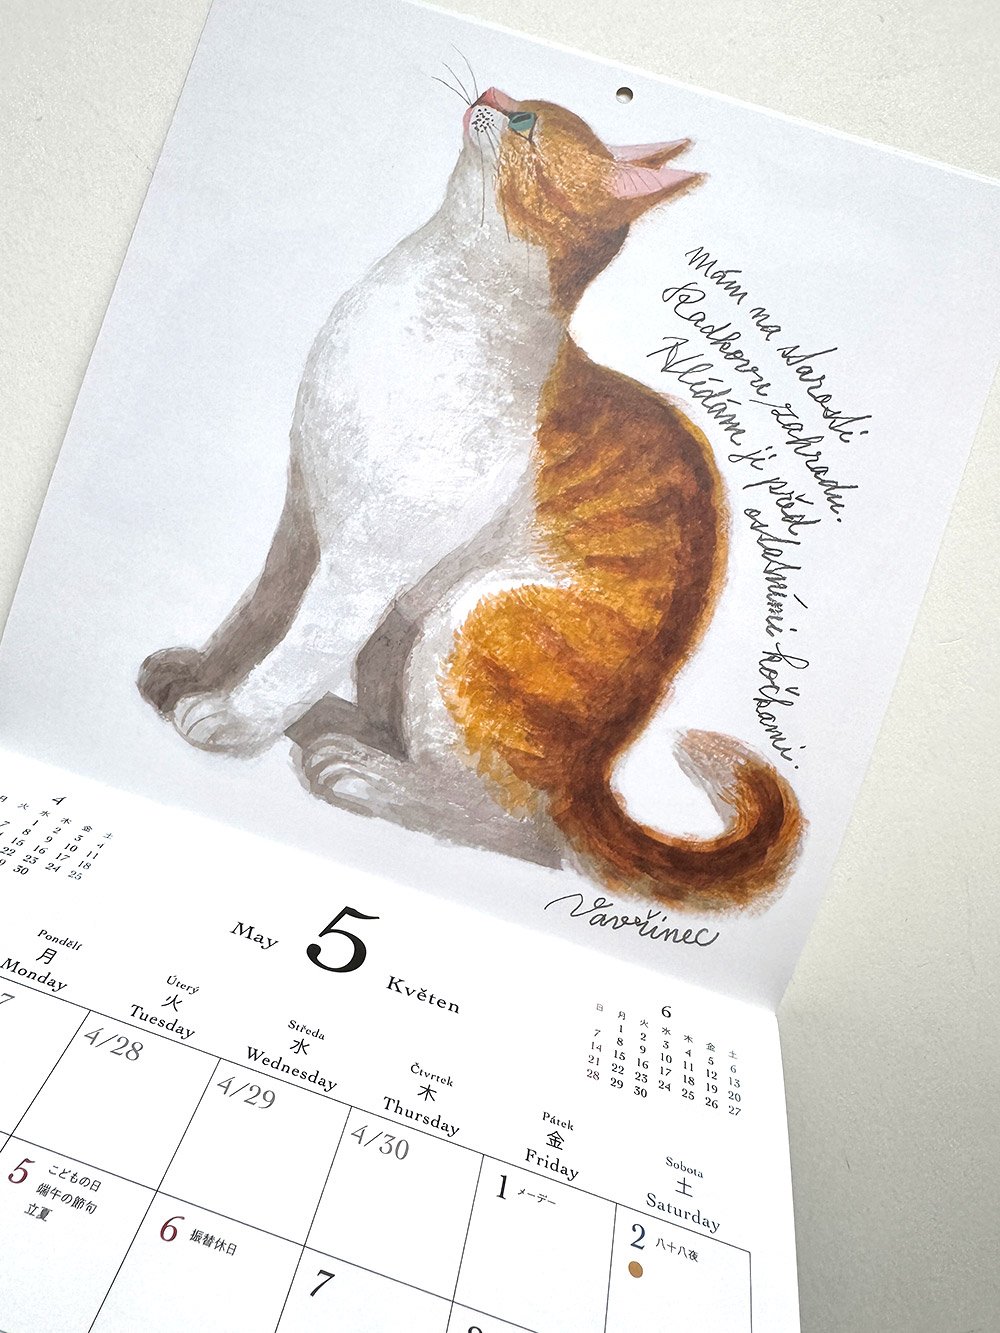 Mám na starosti
Radkovu zahradu.
Hlídám ji před
ostatními kočkami.
Vavřinec
4
月 火 水 木 金 土
1 2 3 4
7 8 9 10 11
15 16 17 18
22 23 24 25
30
May 5 Květen
6
日 月 火 水 木 金 土
1 2 3 4 5 6
7 8 9 10 11 12 13
14 15 16 17 18 19 20
21 22 23 24 25 26 27
28 29 30
Pondělí Úterý Středa Čtvrtek Pátek Sobota
月 火 水 木 金 土
Monday Tuesday Wednesday Thursday Friday Saturday
7 4/28 4/29 4/30 1 メーデー 2 八十八夜
5 こどもの日
端午の節句
立夏
6 振替休日
7